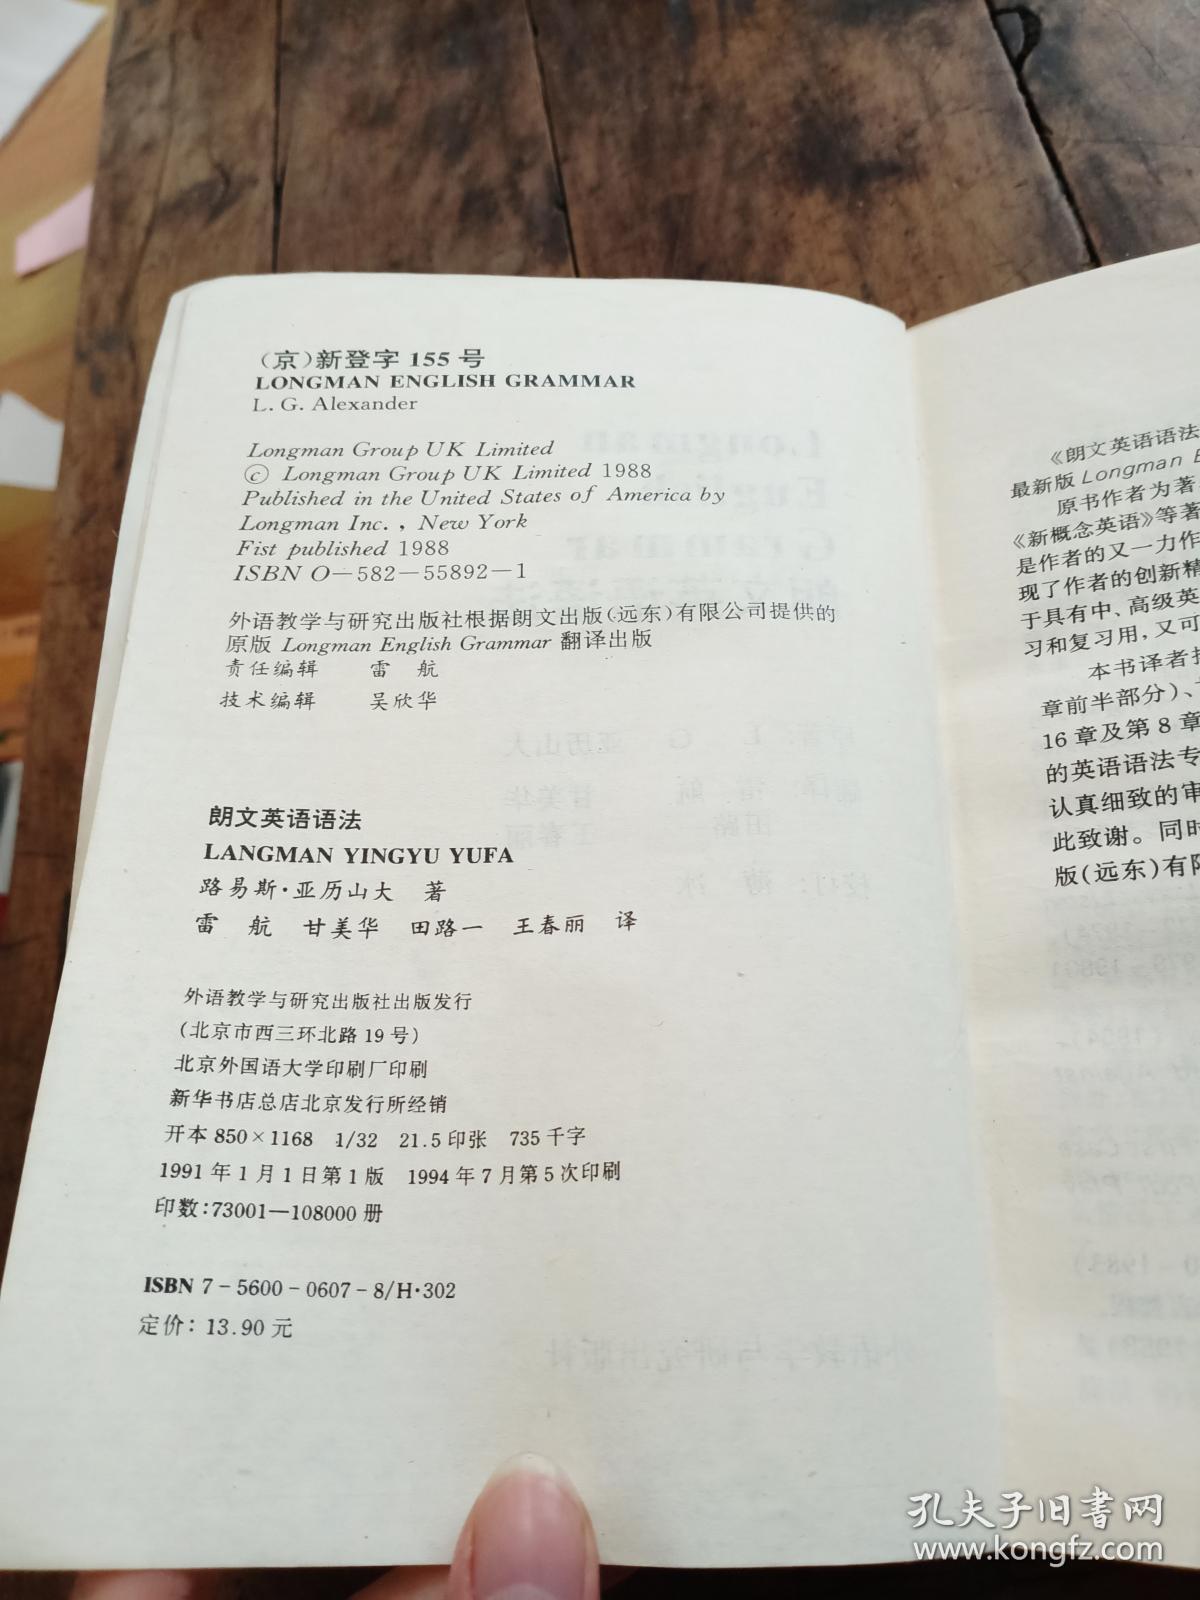 (京)新登字 155 号
LONGMAN ENGLISH GRAMMAR
L. G. Alexander
Longman Group UK Limited
© Longman Group UK Limited 1988
Published in the United States of America by
Longman Inc. , New York
Fist published 1988
ISBN O—582—55892—1
外语教学与研究出版社根据朗文出版(远东)有限公司提供的
原版 Longman English Grammar 翻译出版
责任编辑 雷 航
技术编辑 吴欣华
朗文英语语法
LANGMAN YINGYU YUFA
路易斯·亚历山大 著
雷 航 甘美华 田路一 王春丽 译
外语教学与研究出版社出版发行
(北京市西三环北路 19 号)
北京外国语大学印刷厂印刷
新华书店总店北京发行所经销
开本 850×1168 1/32 21.5 印张 735 千字
1991 年 1 月 1 日第 1 版 1994 年 7 月第 5 次印刷
印数:73001—108000 册
ISBN 7-5600-0607-8/H·302
定价: 13.90 元
《朗文英语语法
最新版 Longman E
原书作者为著
《新概念英语》等著
是作者的又一力作
现了作者的创新精
于具有中、高级英
习和复习用,又可
本书译者按
章前半部分)、
16 章及第 8 章
的英语语法专
认真细致的审
此致谢。同时
版(远东)有限
孔夫子旧书网
www.kongfz.com